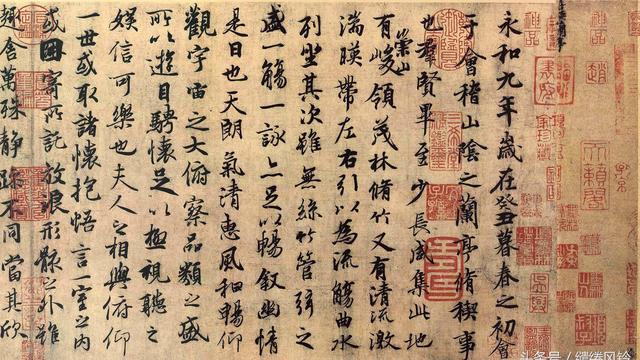 神品
永和九年歲在癸丑暮春之初會
于會稽山陰之蘭亭脩稧事
也羣賢畢至少長咸集此地
有崇山峻領茂林脩竹又有清流激
湍暎帶左右引以為流觴曲水
列坐其次雖無絲竹管弦之
盛一觴一詠亦足以暢叙幽情
是日也天朗氣清惠風和暢仰
觀宇宙之大俯察品類之盛
所以遊目騁懷足以極視聽之
娛信可樂也夫人之相與俯仰
一世或取諸懷抱悟言一室之內
或因寄所託放浪形骸之外雖
趣舍萬殊静躁不同當其欣
头条号／缱绻风铃